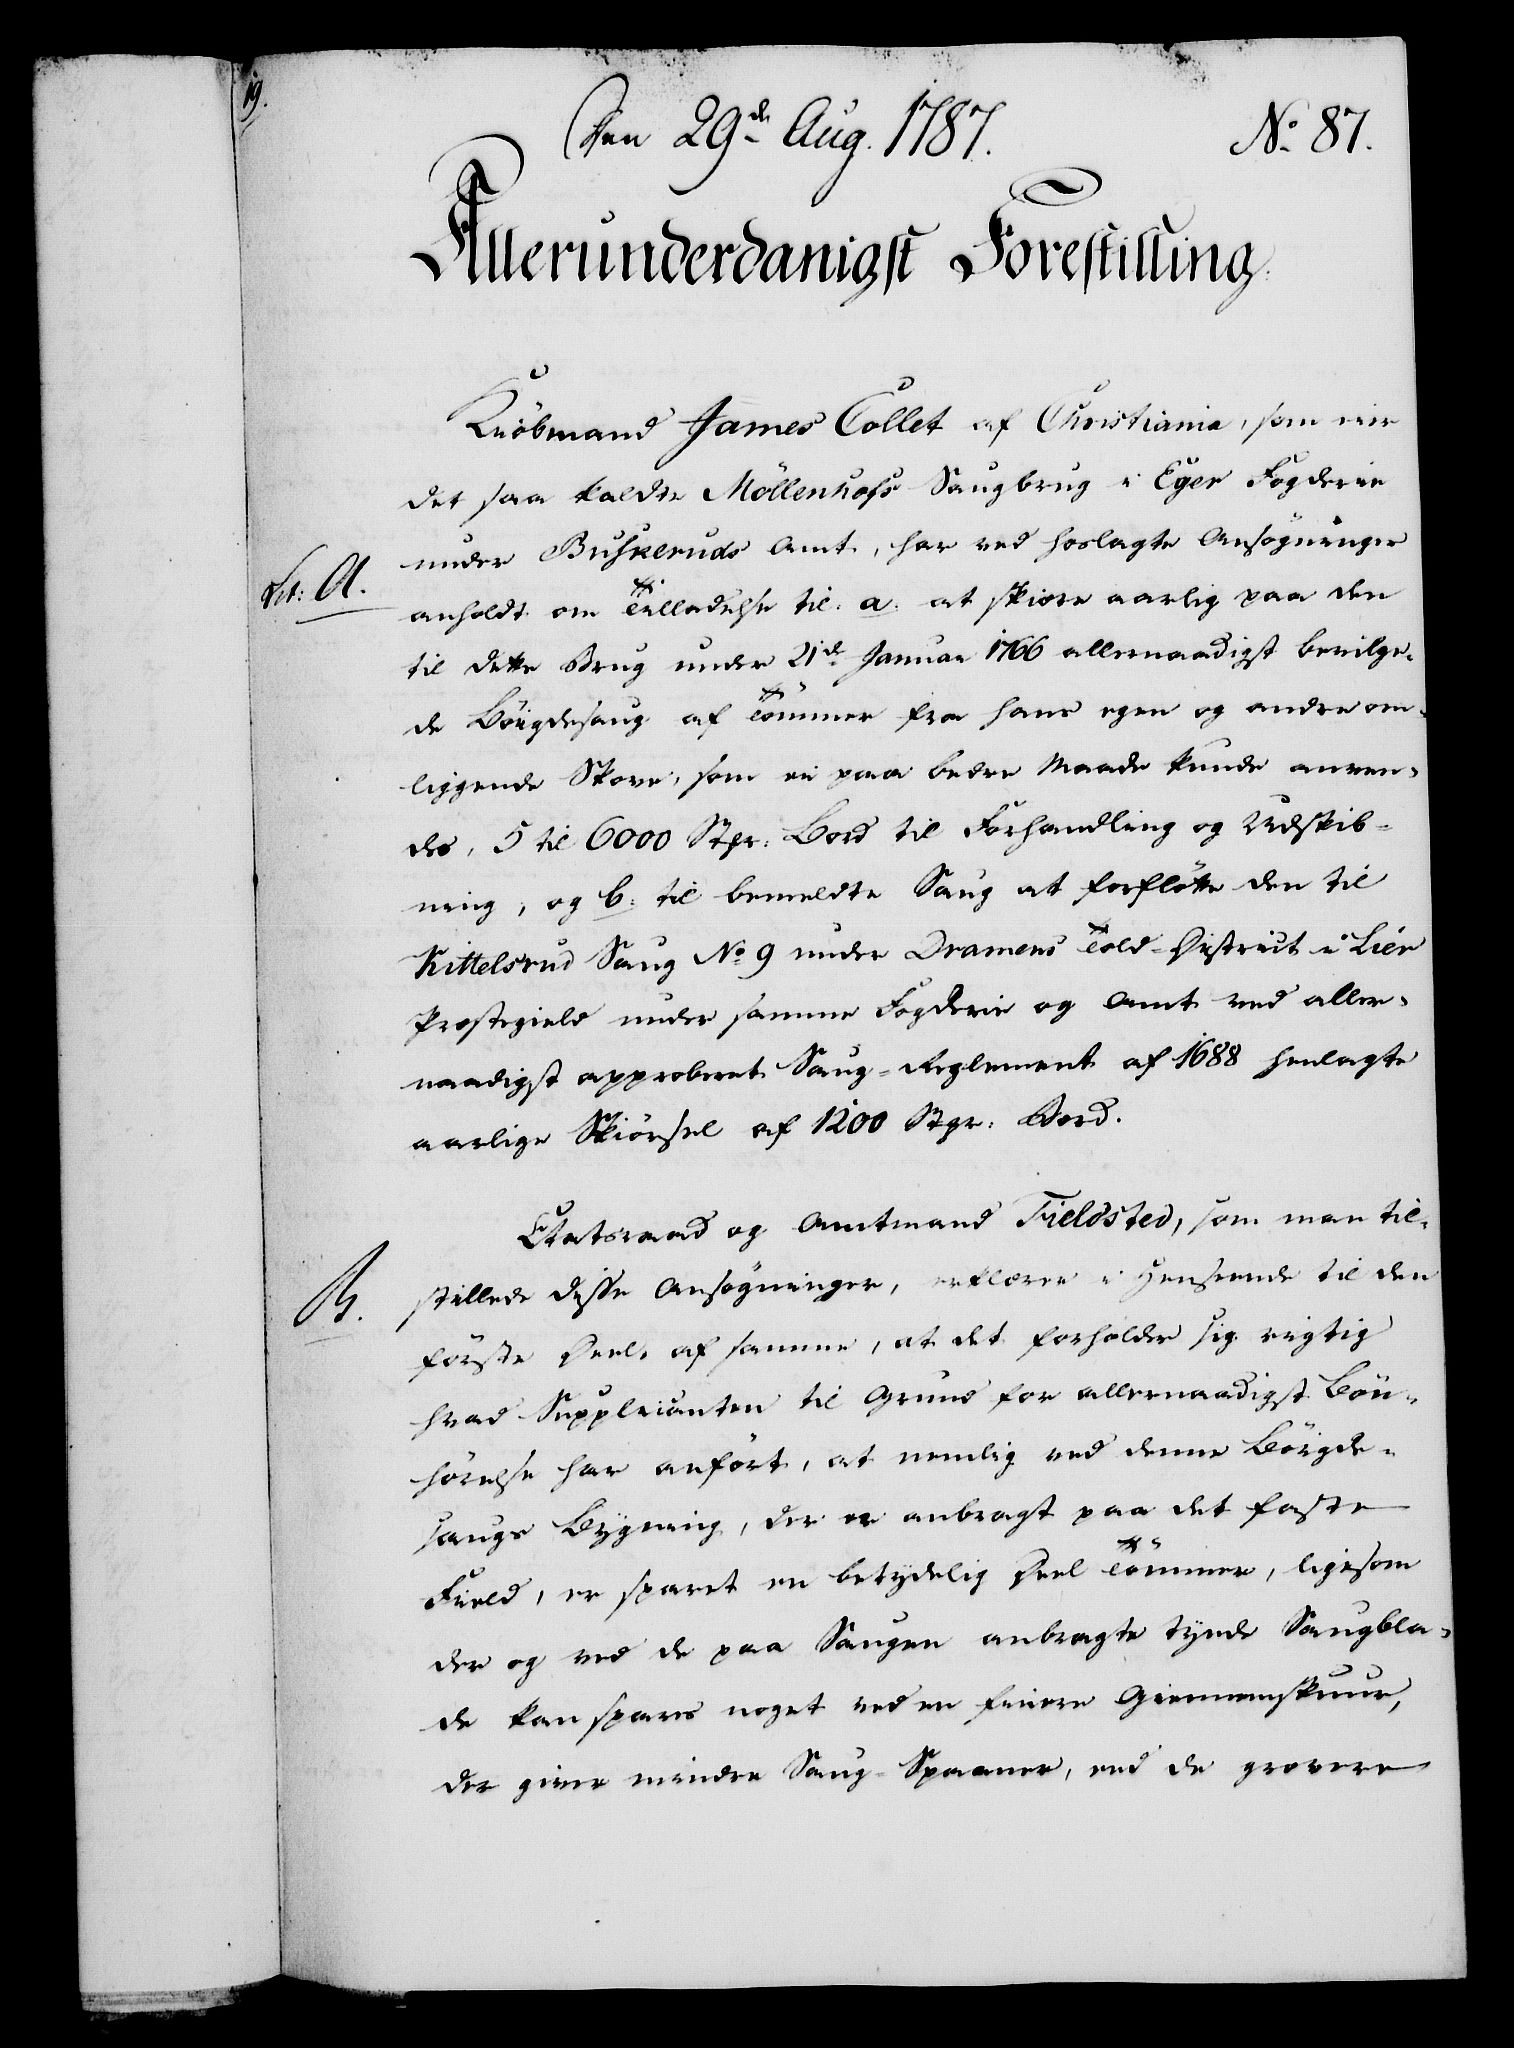 19.
Den 29de Aug. 1787. No. 87.
Allerunderdanigst Forestilling.
Kiöbmand James Collet af Christiania, som eier
det saa kaldte Möllenhofs Saugbrug i Eger Fogderie
under Buskeruds Amt, har ved hoslagte Ansögninger
Lit: A.
anholdt om Tilladelse til: a. at skiære aarlig paa den
til dette Brug under 21de Januar 1766 allernaadigst bevilge-
de Böigdesaug af Tömmer fra hans egen og andre om-
liggende Skove, som ei paa bedre Maade kunde anven-
des, 5 til 6000 Stpr: Bord til Forhandling og Udskib-
ning, og b. til bemeldte Saug at forflötte den til
Kittelsrud Saug No. 9 under Dramens Told-District i Lier
Præstegield under samme Fogderie og Amt ved aller-
naadigst approberet Saug-Reglement af 1688 henlagte
aarlige Skiörsel af 1200 Stpr: Bord.
Etatsraad og Amtmand Fieldsted, som man til-
B.
stillede disse Ansögninger, erklærer i Henseende til den
förste Deel af samme, at det forholder sig rigtig
hvad Supplicanten til Grund for allernaadigst Bön-
hörelse har anfört, at nemlig ved denne Böigde-
saugs Bygning, der er anbragt paa det faste
Field, er sparet en betydelig Deel Tömmer, ligesom
der og ved de paa Saugen anbragte tynde Saugbla-
de kan spares noget ved en finere Giennemskuur,
der giver mindre Saug-Spaaner, end de grovere